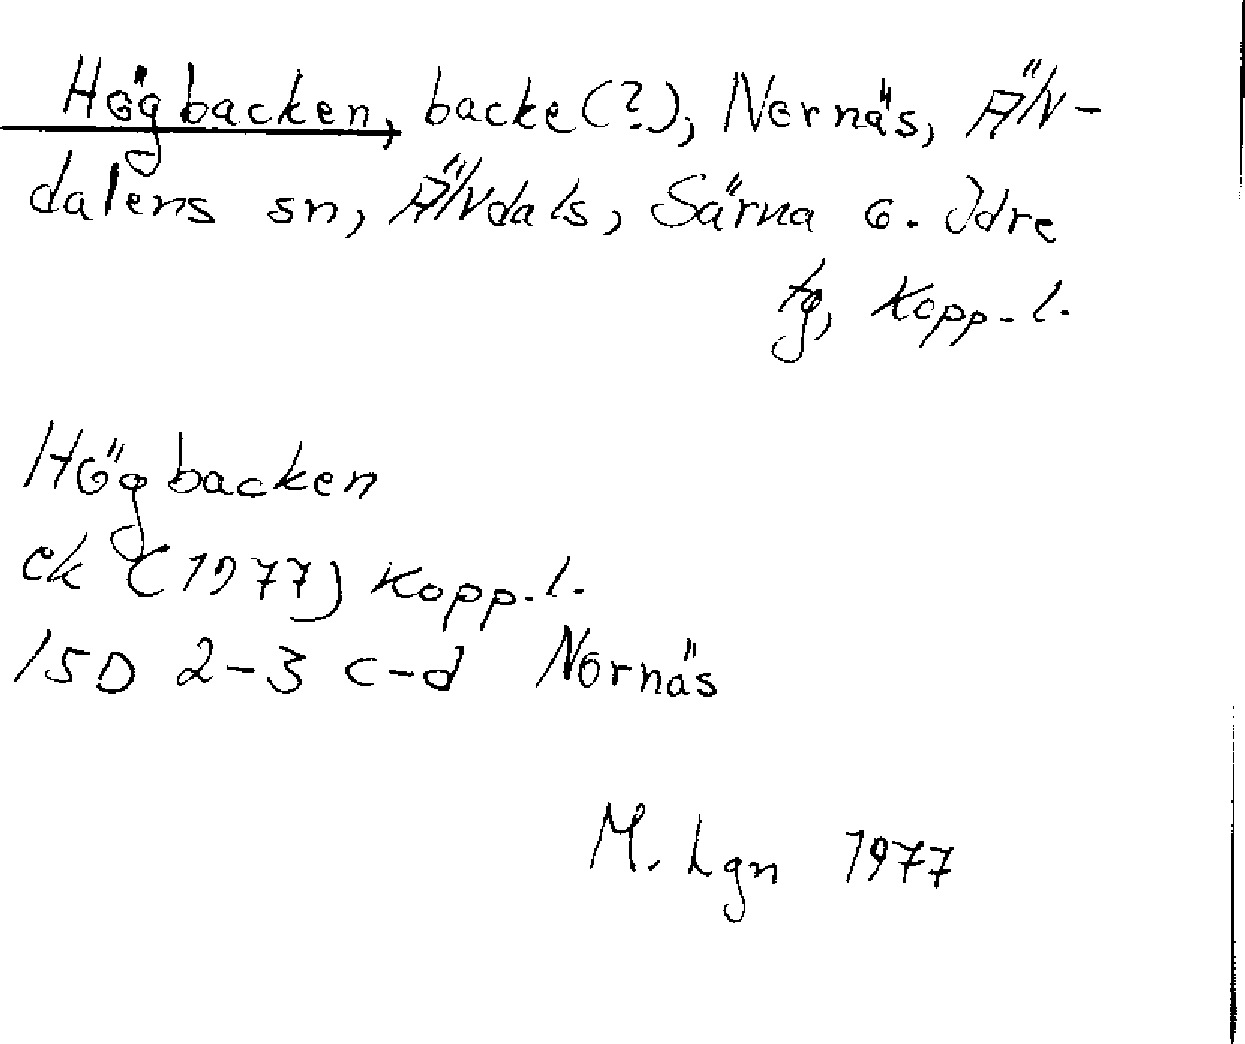 Högbacken, backe(?), Nornäs, Älv-
dalens sn, Älvdals, Särna o. Idre
tg, Kopp. l.
Högbacken
ek (1977) Kopp. l.
15D 2-3 c-d Nornäs
M. Lgn 1977